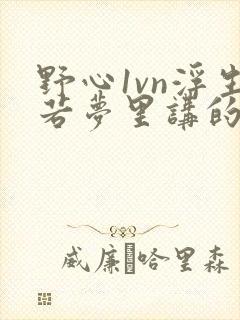 野心1vn浮生
若夢里講的
威廉·哈里森